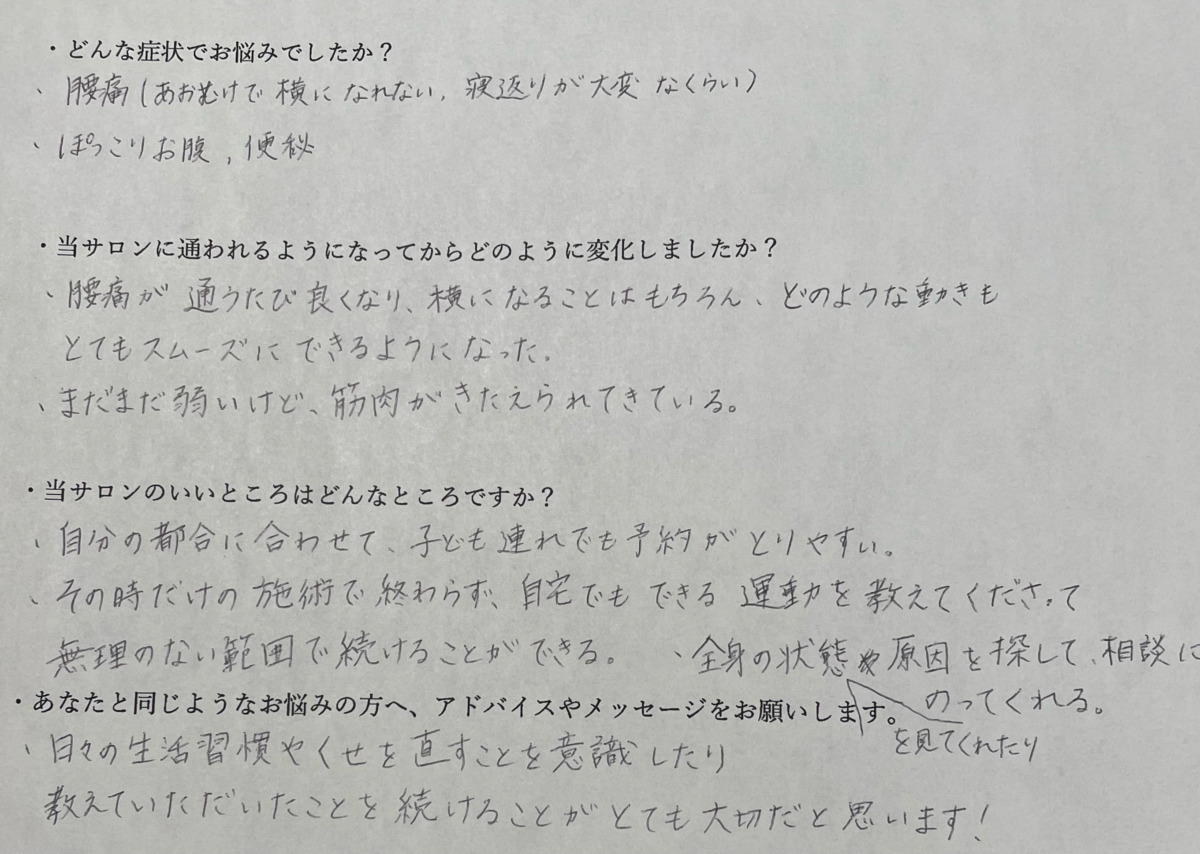 ・どんな症状でお悩みでしたか？
、腰痛(あおむけで横になれない、寝返りが大変なくらい)
、ぽっこりお腹、便秘
・当サロンに通われるようになってからどのように変化しましたか？
、腰痛が通うたび良くなり、横になることはもちろん、どのような動きも
とてもスムーズにできるようになった。
、まだまだ弱いけど、筋肉がきたえられてきている。
・当サロンのいいところはどんなところですか？
、自分の都合に合わせて、子ども連れでも予約がとりやすい。
、その時だけの施術で終わらず、自宅でもできる運動を教えてくださって
無理のない範囲で続けることができる。 、全身の状態や原因を探して、相談に
のってくれる。
を見てくれたり
・あなたと同じようなお悩みの方へ、アドバイスやメッセージをお願いします。
、日々の生活習慣やくせを直すことを意識したり
教えていただいたことを続けることがとても大切だと思います！